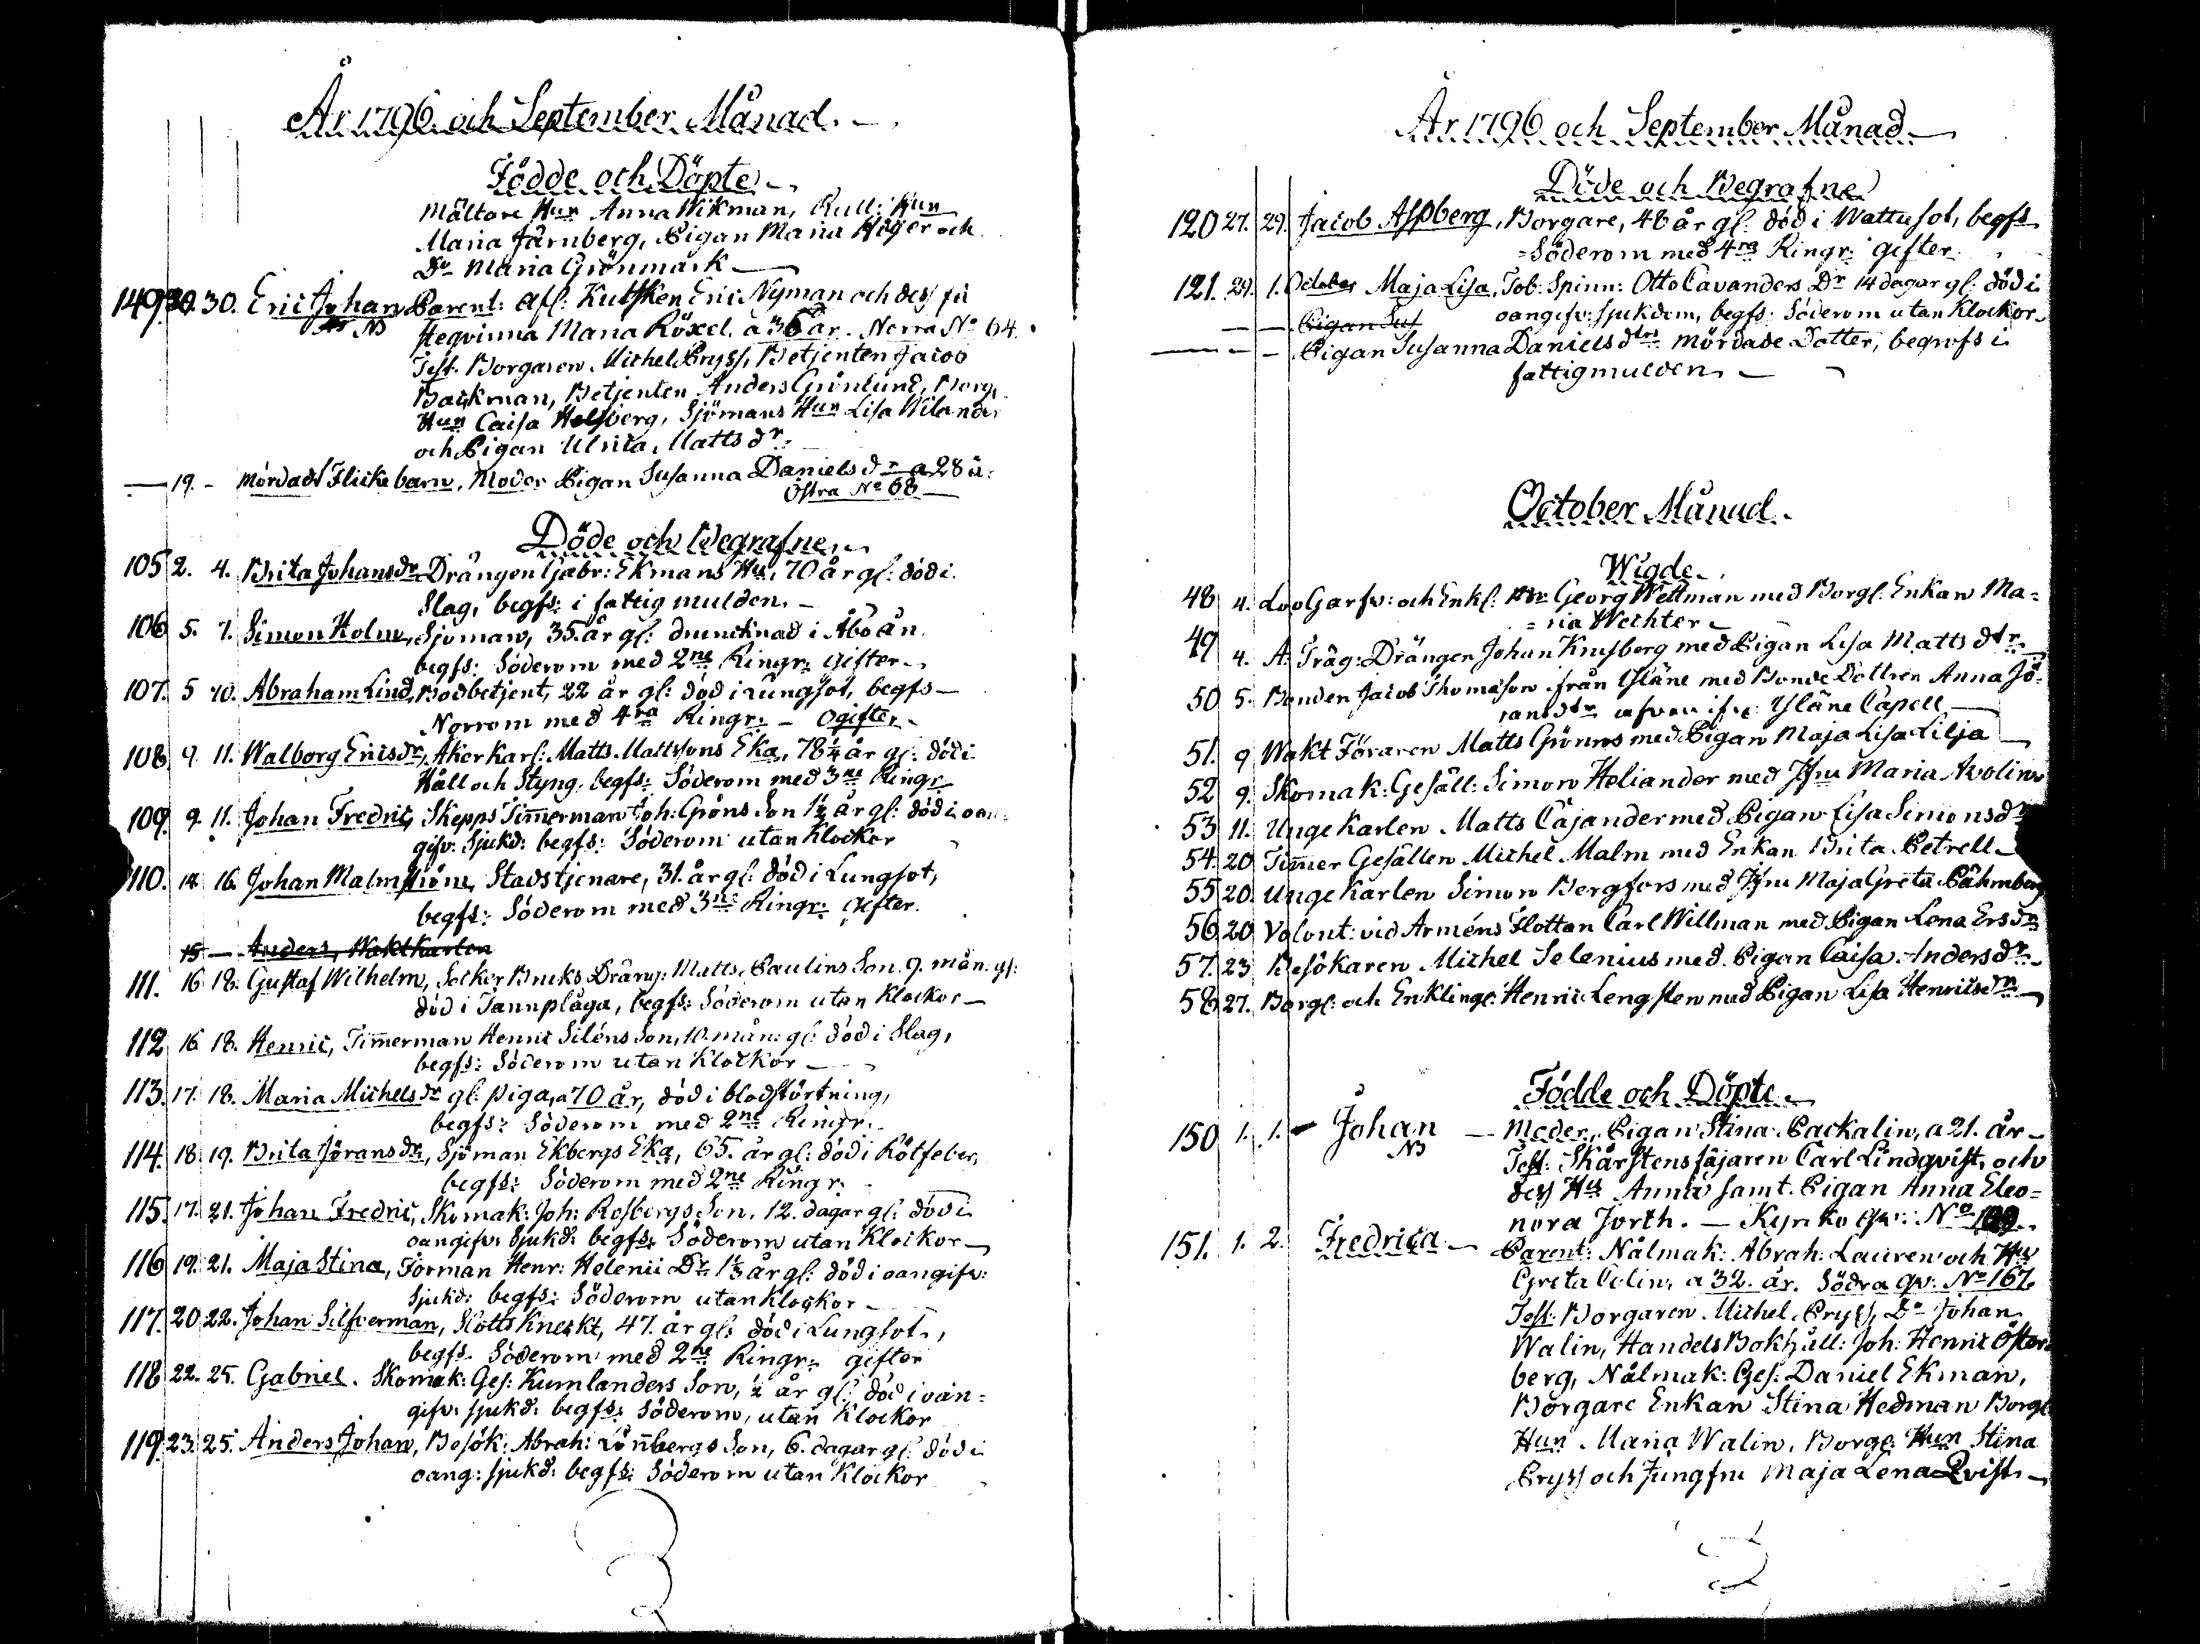 År 1796 och September Månad.
Födde och Döpte
Mältare Hun Anna Wikman, Rull: Hun
Maria Järnberg, Pigan Maria Höijer och
Do Maria Grönmark
149. 30. 30. Eric Johan Parent: Afl: Kutsken Eric Nyman och dess fä
NB steqvinna Maria Röxel. a 36 år. Norra No 64.
Test. Borgaren Michel Pryss, Betjenten Jacob
Backman, Betjenten Anders Grönlund, Borg.
Hun Caisa Helsberg, Sjömans Hun Lisa Wilander
och Pigan Ulrica Matts dr.
— 19. - mördadt Flickebarn, Moder Pigan Susanna Daniels dr a 28 å:
Östra No 68
Döde och Begrafne
105 2. 4. Brita Johansdr Drängen Gabr: Ekmans Hu, 70 år gl: död i
Slag, begfs: i fattig mulden.
106 5. 7. Simon Holm, Sjöman, 35 år gl: druncknad i Åbo ån
begfs: Söderom med 2ne Ringr: Gifter
107. 5 10. Abraham Lind, Bodbetjent, 22 år gl: död i Lungsot, begfs
Norrom med 4ra Ringr: — Ogifter
108 9 11. Walborg Ericsdr, Åkerkarl: Matts Mattssons Eka, 78 1/4 år gl: död i
Håll och Styng, begfs: Söderom med 3ne Ringr
109. 9. 11. Johan Fredric, Skepps Timerman Joh: Gröns Son 1 1/2 år gl: död i oan=
gifv: Sjukd: begfs: Söderom utan Klockor
110. 14 16. Johan Malmström, Stadstjenare, 31. år gl: död i Lungsot,
begfs: Söderom med 3ne Ringr: Gifter.
15 — Anders, Waktkarlen
111. 16 18. Gustaf Wilhelm, Socker Bruks Dräng: Matts Paulins Son 9. mån: gl:
död i Tannplåga, begfs: Söderom utan Klockor
112 16 18. Henric, Timerman Henric Siléns Son, 10. mån: gl: död i Slag,
begfs: Söderom utan Klockor
113. 17. 18. Maria Michelsdr gl. piga, a 70 år, död i blodstörtning,
begfs: Söderom med 2ne Ringr.
114. 18. 19. Brita Jöransdr, Sjöman Ekbergs Eka, 65. år gl: död i Rötfeber,
begfs: Söderom med 2ne Ringr.
115. 17. 21. Johan Fredric, Skomak: Joh: Rosbergs Son, 12. dagar gl: död i
oangifv: Sjukd: begfs: Söderom utan Klockor
116 19. 21. Maja Stina, Forman Henr: Helenii Dr 1 1/3 år gl: död i oangifv:
Sjukd: begfs: Söderom utan Klockor
117. 20 22. Johan Silfverman, Slotts Kneckt, 47. år gl: död i Lungsot,
begfs Söderom med 2ne Ringr: gifter
118 22. 25. Gabriel. Skomak: Ges: Kumlanders Son, 1/2 år gl: död i oan=
gifv: sjukd: begfs: Söderom, utan Klockor
119. 23. 25. Anders Johan, Besök: Abrah: Lönbergs Son, 6. dagar gl: död i
oang: sjukd: begfs: Söderom utan Klockor
År 1796 och September Månad
Döde och Begrafne
120 27. 29. Jacob Aspberg, Borgare, 48 år gl: död i Wattusot, begfs
=Söderom med 4ra Ringr: gifter
121. 29. 1. October Maja Lisa, Tob: Spinn: Otto Cavanders Dr 14 dagar gl: död i
oangifv: sjukdom, begfs: Söderom utan Klockor
— — Pigan Sus
— - - Pigan Susanna Daniels dtrs mördade Dotter, begrofs i
fattigmulden
October Månad
Wigde
48 4. LooGarfv: och Enkl: Georg Wettman med Borgl: Enkan Ma=
=ria Wechter
49 4. A: Träg: Drängen Johan Knusberg med Pigan Lisa Matts dtr
50 5. Bonden Jacob Thomasson från Yläne med Bonde Dottren Anna Jö=
ransdtr Yläne Capell
51. 9 Wakt Föraren Matts Grönros med Pigan Maja Lisa Lilja
52 9. Skomak: Gesäll: Simon Heliander med Jfru Maria Avolin
53 11. Unge Karlen Matts Cajander med Pigan Lisa Simonsdr
54. 20. Timer Gesällen Michel Malm med Enkan Brita Petrell
55 20. Unge Karlen Simon Bergfors med Jfru Maja Greta Påhmberg
56 20 Volont: vid Arméns Flottan Carl Willman med Pigan Lena Ersdr
57. 23 Besökaren Michel Selenius med Pigan Caisa Andersdr
58 27. Borgl: och Enklingen Henric Lengsten med Pigan Lisa Henricsdr
Födde och Döpte
150 1. 1. Johan — Moder, Pigan Stina Packalin, a 21. år
NB Test: Skårstensfäjaren Carl Lindqvist, och
dess Hu Anna samt Pigan Anna Eleo=
nora Forth. — Kyrko Qv: No
151. 1. 2. Fredrica — Parent: Nålmak: Abrah: Lauren och Hu
Greta Colin, a 32. år. Södra Qv: No 167.
Test: Borgaren Michel Pryss, Do Johan
Walin, Handels Bokhåll: Joh: Henric Öster
berg, Nålmak: Ges: Daniel Ekman,
Borgare Enkan Stina Hedman Borgl
Hun Maria Walin, Borgl: Hun Stina
Pryss och Jungfru Maja Lena Qvist